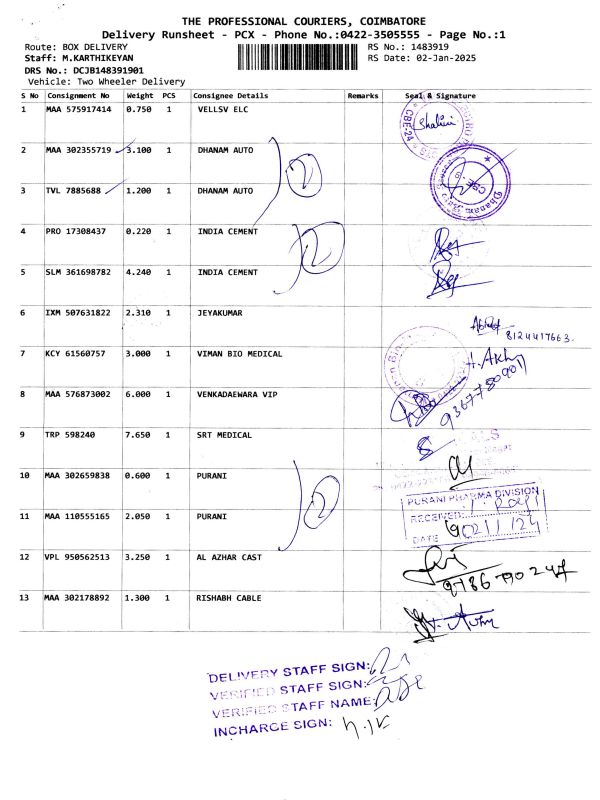 THE PROFESSIONAL COURIERS, COIMBATORE
Delivery Runsheet - PCX - Phone No.:0422-3505555 - Page No.:1
Route: BOX DELIVERY
RS No.: 1483919
Staff: M.KARTHIKEYAN
RS Date: 02-Jan-2025
DRS No.: DCJB148391901
Vehicle: Two Wheeler Delivery
S No Consignment No Weight PCS Consignee Details Remarks Seal & Signature
1 MAA 575917414 0.750 1 VELLSV ELC
Shalini
CBE-24
2 MAA 302355719 3.100 1 DHANAM AUTO
2
CBE
Dhanam Auto
3 TVL 7885688 1.200 1 DHANAM AUTO
4 PRO 17308437 0.220 1 INDIA CEMENT
2
5 SLM 361698782 4.240 1 INDIA CEMENT
6 IXM 507631822 2.310 1 JEYAKUMAR
8124417663
7 KCY 61560757 3.000 1 VIMAN BIO MEDICAL
8 MAA 576873002 6.000 1 VENKADAEWARA VIP
9367780901
9 TRP 598240 7.650 1 SRT MEDICAL
10 MAA 302659838 0.600 1 PURANI
2
PURANI PHARMA DIVISION
RECEIVED:
11 MAA 110555165 2.050 1 PURANI
DATE
12 VPL 950562513 3.250 1 AL AZHAR CAST
13 MAA 302178892 1.300 1 RISHABH CABLE
DELIVERY STAFF SIGN:
VERIFIED STAFF SIGN:
VERIFIED STAFF NAME:
INCHARGE SIGN: